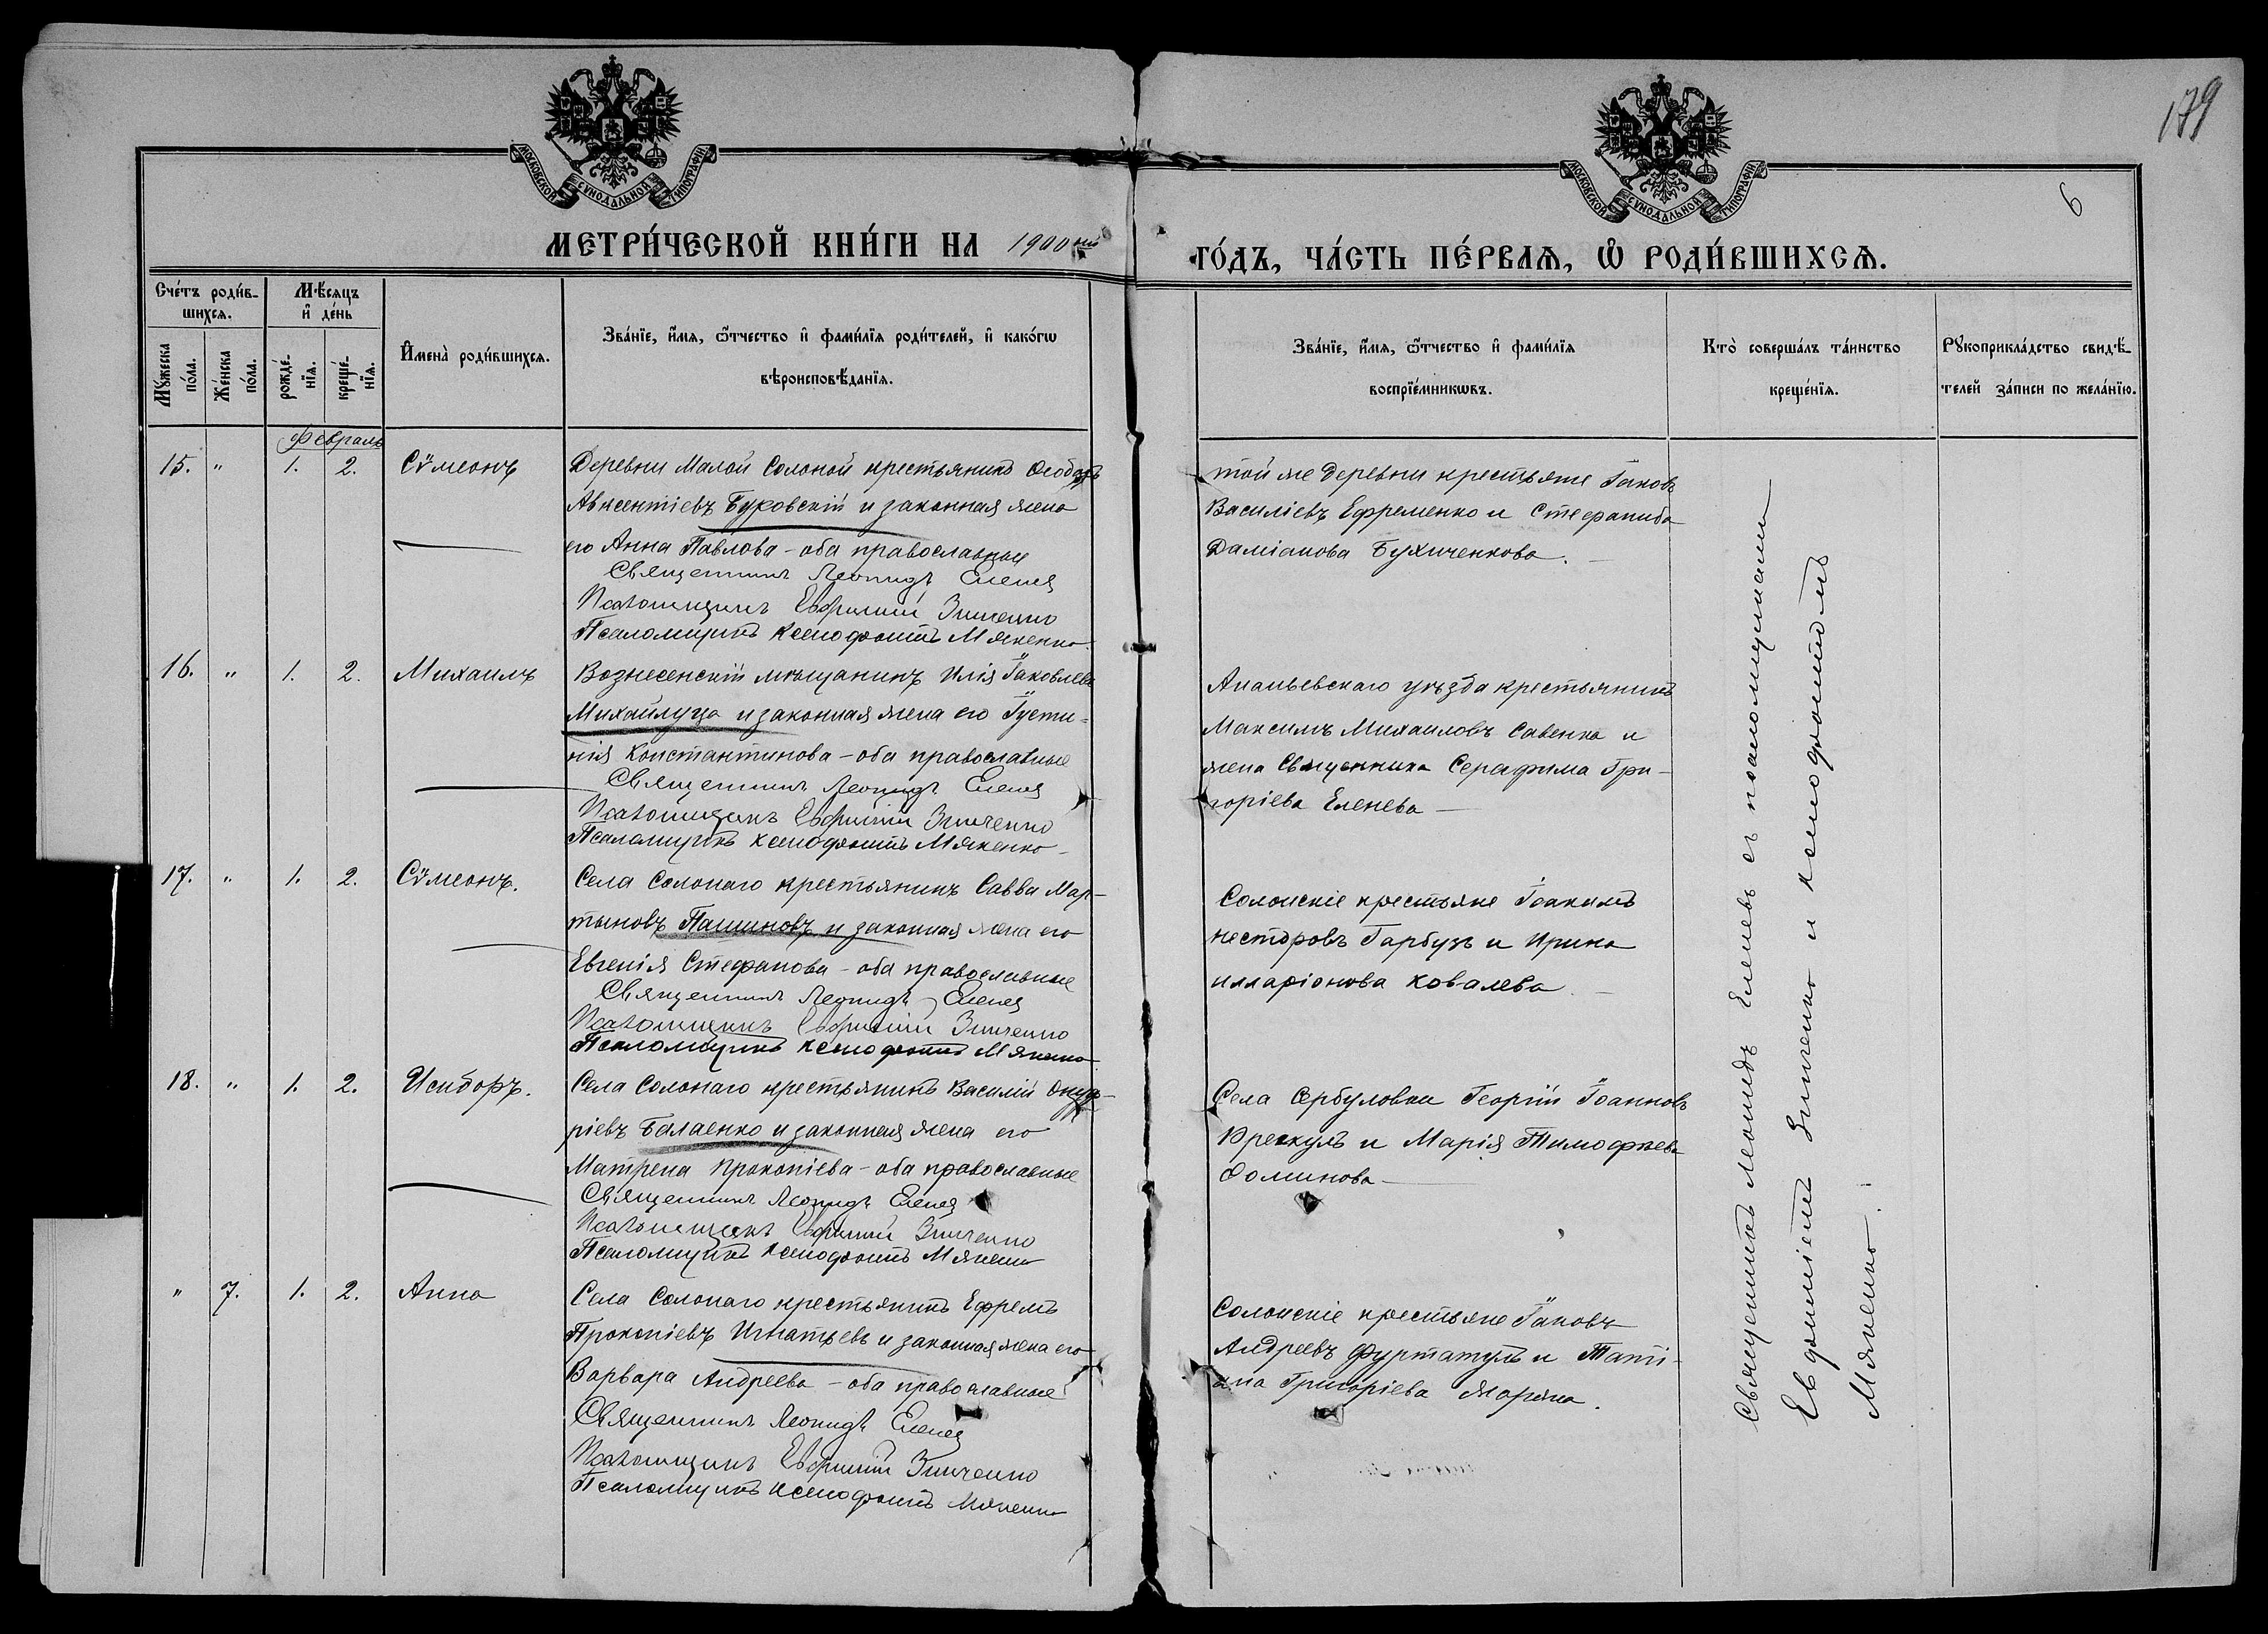 179
6
МОСКОВСКОЙ СѴНОДАЛЬНОЙ ТИПОГРАФІИ
МОСКОВСКОЙ СѴНОДАЛЬНОЙ ТИПОГРАФІИ
МЕТРИ́ЧЕСКОЙ КНИ́ГИ НА 1900 ГО́ДЪ, ЧА́СТЬ ПЕ́РВАѦ, Ѡ РОДИ́ВШИХСѦ.
Сче́тъ роди́в-
шихсѧ.
Мꙋ́жеска по́ла.
Же́нска по́ла.
Мѣ́сѧцъ и҆ де́нь
рожде́-
нїѧ.
креще́-
нїѧ.
И҆мена̀ роди́вшихсѧ.
Зва́нїе, и҆́мѧ, ѻ҆́тчество и҆ фами́лїѧ роди́телей, и҆ како́гѡ
вѣроисповѣ́данїѧ.
Зва́нїе, и҆́мѧ, ѻ҆́тчество и҆ фами́лїѧ
воспрїе́мникѡвъ.
Кто̀ соверша́лъ та́инство
креще́нїѧ.
Рꙋкоприкла́дство свидѣ́-
телей за́писи по жела́нїю.
Февраль
15. " 1. 2. Сѵмеонъ
Деревни Малой Солоной крестьянинъ
Авксентіевъ Буковскій и законная жена
его Анна Павлова - оба православные
Священникъ Леонидъ Еленев
Псаломщикъ Евфимій Зинченко
Псаломщикъ Ксенофонтъ Мякенко
той же деревни крестьяне Іаковъ
Василіевъ Ефременко и Стефанида
Даміанова Бухиченкова.
16. " 1. 2. Михаилъ
Вознесенскій мѣщанинъ Илія Іаковлевъ
Михайлуца и законная жена его Іусти-
нія Константинова - оба православные
Священникъ Леонидъ Еленев
Псаломщикъ Евфимій Зинченко
Псаломщикъ Ксенофонтъ Мякенко
Ананьевскаго уѣзда крестьянинъ
Максимъ Михаиловъ Савенко и
жена Священника Серафима Гри-
горіева Еленева
17. " 1. 2. Сѵмеонъ.
Села Солонаго крестьянинъ Савва Мар-
тыновъ Пашиновъ и законная жена его
Евгенія Стефанова - оба православные
Священникъ Леонидъ Еленев
Псаломщикъ Евфимій Зинченко
Псаломщикъ Ксенофонтъ Мякенко
Солонскіе крестьяне Іоакимъ
Несторовъ Гарбузъ и Ирина
Илларіонова Ковалева
18. " 1. 2. Исидоръ.
Села Солонаго крестьянинъ Василій Онуф-
ріевъ Балаенко и законная жена его
Матрена Прокопіева - оба православные
Священникъ Леонидъ Еленев
Псаломщикъ Евфимій Зинченко
Псаломщикъ Ксенофонтъ Мякенко
Села Сербуловки Георгій Іоанновъ
и Марія Тимофѣева
Фоминова
" 7. 1. 2. Анна
Села Солонаго крестьянинъ Ефремъ
Прокопіевъ Игнатьевъ и законная жена его
Варвара Андреева - оба православные
Священникъ Леонидъ Еленев
Псаломщикъ Евфимій Зинченко
Псаломщикъ Ксенофонтъ Мякенко
Солонскіе крестьяне Іаковъ
Андреевъ Фуртатулъ и Таті-
ана Григоріева
Священникъ Леонидъ Еленевъ съ псаломщиками
Евфиміемъ Зинченко и Ксенофонтомъ
Мякенко.